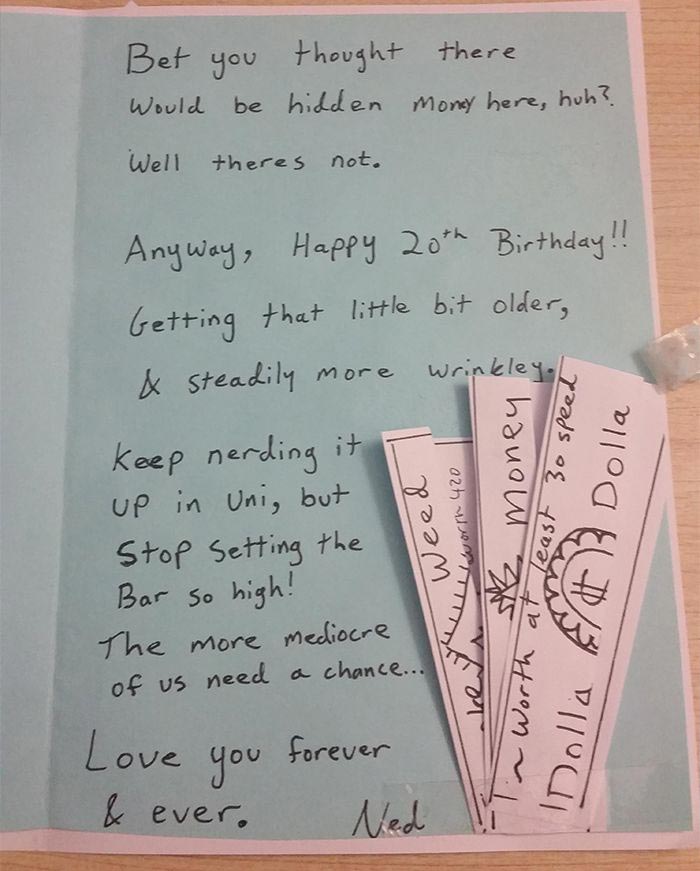 Bet you thought there
Would be hidden money here, huh?
Well theres not.
Anyway, Happy 20th Birthday!!
Getting that little bit older,
& steadily more wrinkley.
Keep nerding it
up in Uni, but
Stop setting the
Bar so high!
The more mediocre
of us need a chance...
Love you forever
& ever.
Ned
Weed
worth 420
Money
~ Worth at least 30 speed
Dolla $ Dolla